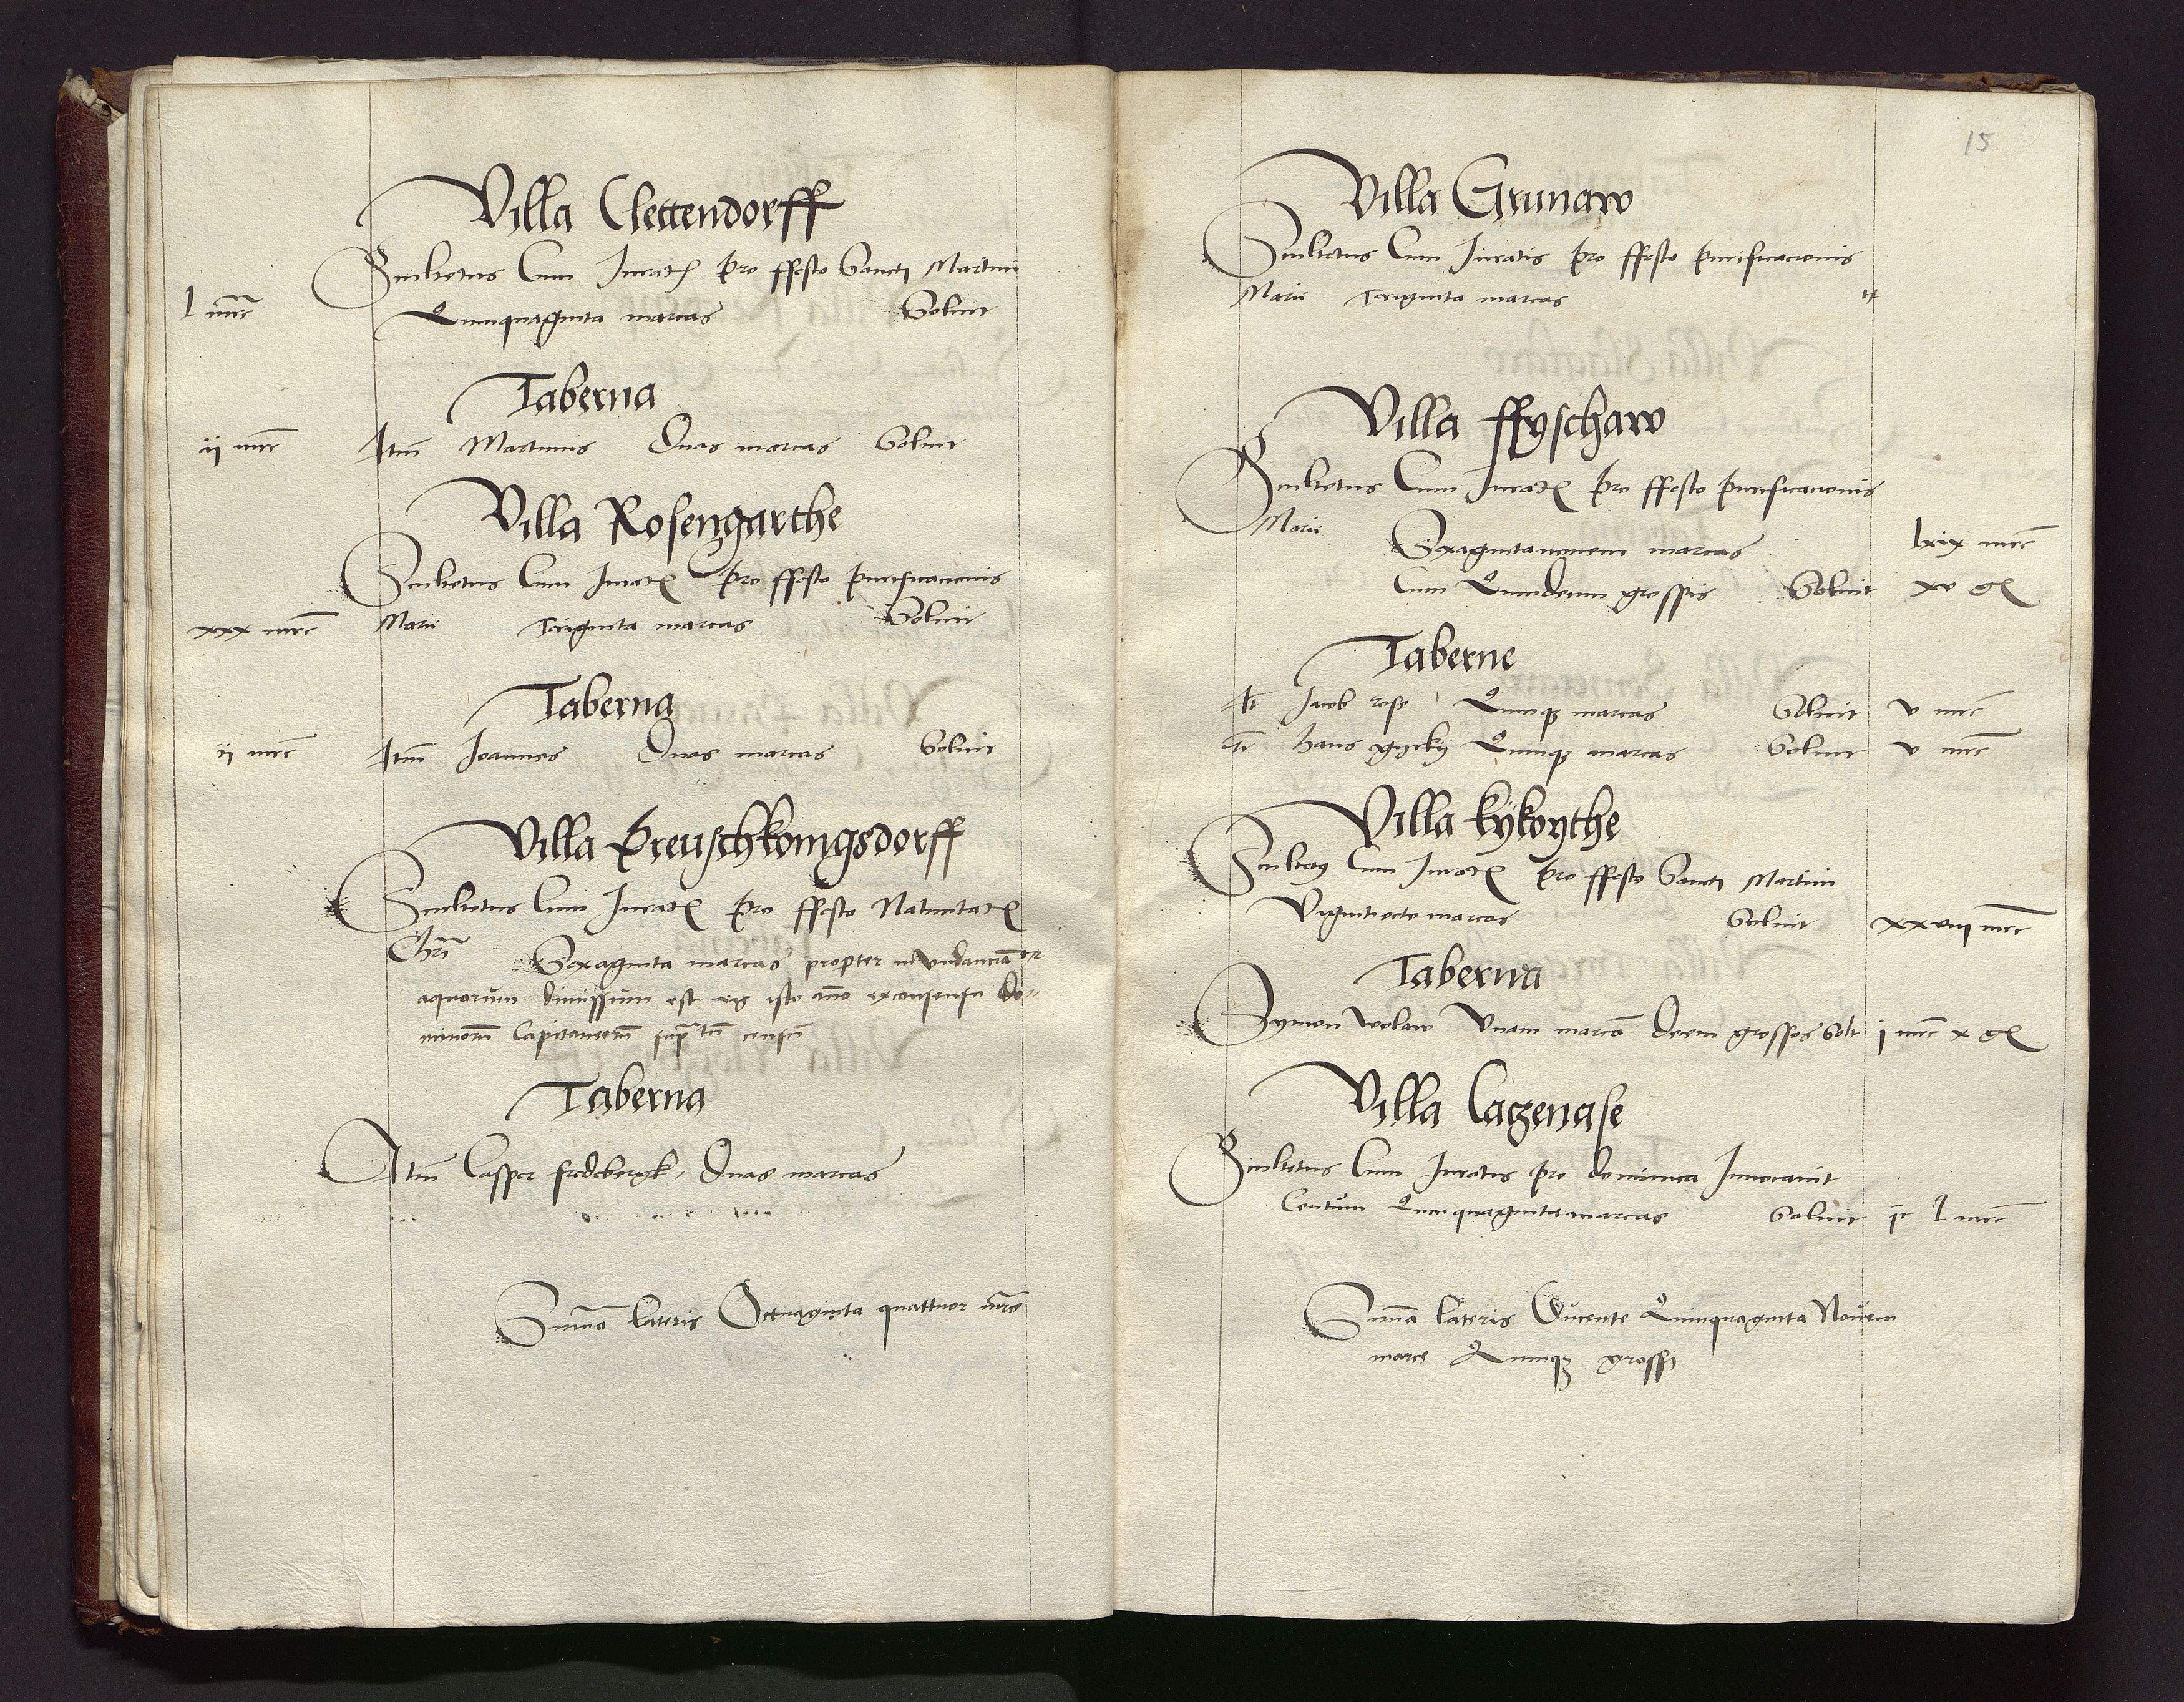 Villa Clettendorff
Scultetus Cum Jurat[is] pro ffesto Sancti Martini
l mrc Quinquaginta marcas Soluit
Taberna
ij mrc Itm Martinus Duas marcas Soluit
Villa Rosengarthe
Scultetus Cum Jurat[is] pro ffesto purificacionis
xxx mrc Marie Triginta marcas Soluit
Taberna
ij mrc Itm Joannes Duas marcas Soluit
Villa Preuschkonigsdorff
Scultetus Cum Jurat[is] pro ffesto Natiuitat[is]
Chri Sexaginta marcas propter in vndanciam
aquarum dimissum est eis isto anno ex consensu do
minorum Capitaneorum census
Taberna
Itm Casper fredebergk Duas marcas
Summa lateris Octuaginta quattuor marce
15
Villa Grunaw
Scultetus Cum Juratis pro ffesto purificacionis
Marie Triginta marcas
Villa ffyschaw
Scultetus Cum Jurat[is] pro ffesto purificacionis
Marie Sexagintanouem marcas lxix mrc
Cum Quindecim grossis Soluit xv g
Taberne
It Jacob rose Quinq marcas Soluit v mrc
It hans Quinq marcas Soluit v mrc
Villa kykoythe
Scultetus Cum Jurat[is] pro ffesto Sancti Martini
Vigintiocto marcas Soluit xxviij mrc
Taberna
Symon wolaw Vnam marcam Decem grossos Solt j mrc x g
Villa Cagenase
Scultetus Cum Juratis pro dominica Inuocauit
Centum Quinquaginta marcas Soluit jc l mrc
Summa lateris Ducente Quinquaginta Nouem
marce Quinq grossi